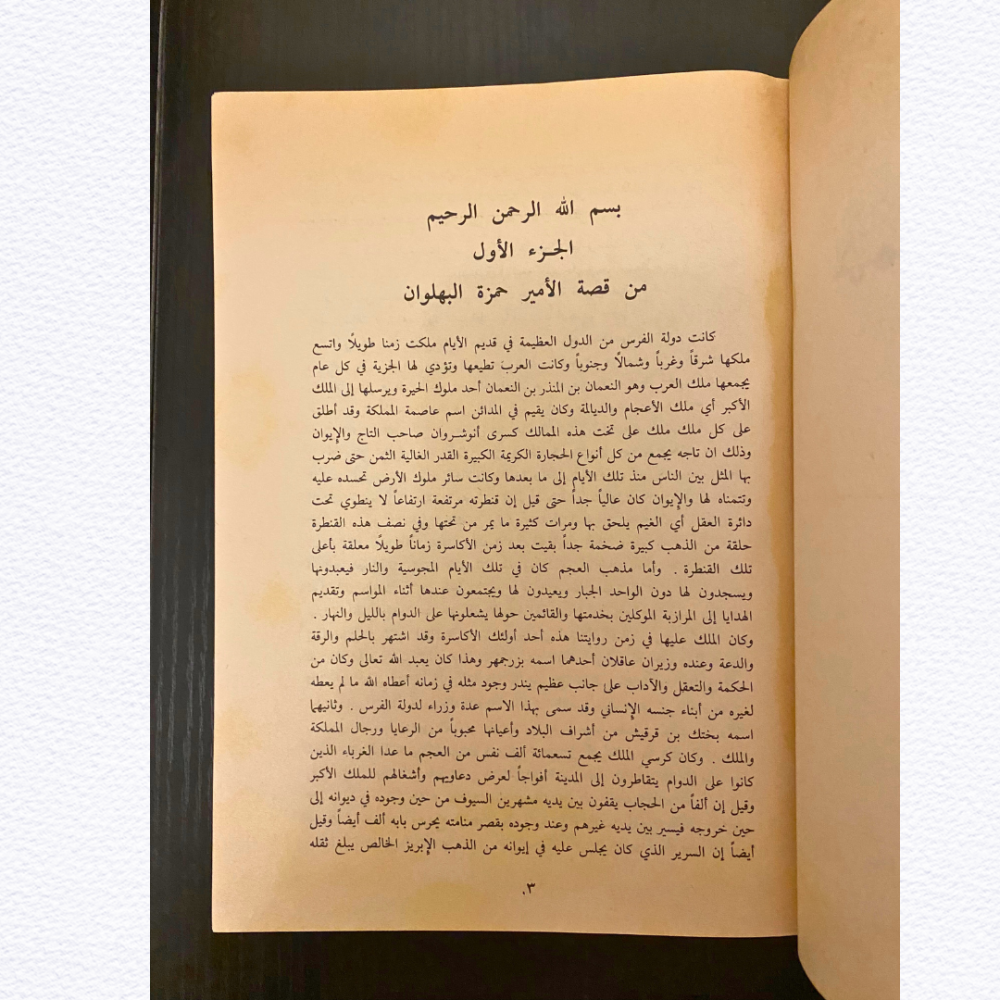 بسم الله الرحمن الرحيم
الجزء الأول
من قصة الأمير حمزة البهلوان
كانت دولة الفرس من الدول العظيمة في قديم الأيام ملكت زمنا طويلًا واتسع
ملكها شرقاً وغرباً وشمالًا وجنوباً وكانت العرب تطيعها وتؤدي لها الجزية في كل عام
يجمعها ملك العرب وهو النعمان بن المنذر بن النعمان أحد ملوك الحيرة ويرسلها إلى الملك
الأكبر أي ملك الأعجام والديالمة وكان يقيم في المدائن اسم عاصمة المملكة وقد أطلق
على كل ملك ملك على تخت هذه الممالك كسرى أنوشروان صاحب التاج والإيوان
وذلك ان تاجه يجمع من كل أنواع الحجارة الكريمة الكبيرة القدر الغالية الثمن حتى ضرب
بها المثل بين الناس منذ تلك الأيام إلى ما بعدها وكانت سائر ملوك الأرض تحسده عليه
وتتمناه لها والإيوان كان عالياً جداً حتى قيل إن قنطرته مرتفعة ارتفاعاً لا ينطوي تحت
دائرة العقل أي الغيم يلحق بها ومرات كثيرة ما يمر من تحتها وفي نصف هذه القنطرة
حلقة من الذهب كبيرة ضخمة جداً بقيت بعد زمن الأكاسرة زماناً طويلًا معلقة بأعلى
تلك القنطرة . وأما مذهب العجم كان في تلك الأيام المجوسية والنار فيعبدونها
ويسجدون لها دون الواحد الجبار ويعيدون لها ويجتمعون عندها أثناء المواسم وتقديم
الهدايا إلى المرازبة الموكلين بخدمتها والقائمين حولها يشعلونها على الدوام بالليل والنهار .
وكان الملك عليها في زمن روايتنا هذه أحد أولئك الأكاسرة وقد اشتهر بالحلم والرقة
والدعة وعنده وزيران عاقلان أحدهما اسمه بزرجمهر وهذا كان يعبد الله تعالى وكان من
الحكمة والتعقل والآداب على جانب عظيم يندر وجود مثله في زمانه أعطاه الله ما لم يعطه
لغيره من أبناء جنسه الإنساني وقد سمى بهذا الاسم عدة وزراء لدولة الفرس . وثانيهما
اسمه بختك بن قرقيش من أشراف البلاد وأعيانها محبوباً من الرعايا ورجال المملكة
والملك . وكان كرسي الملك يجمع تسعمائة ألف نفس من العجم ما عدا الغرباء الذين
كانوا على الدوام يتقاطرون إلى المدينة أفواجاً لعرض دعاويهم وأشغالهم للملك الأكبر
وقيل إن ألفاً من الحجاب يقفون بين يديه مشهرين السيوف من حين وجوده في ديوانه إلى
حين خروجه فيسير بين يديه غيرهم وعند وجوده بقصر منامته يحرس بابه ألف أيضاً وقيل
أيضاً إن السرير الذي كان يجلس عليه في إيوانه من الذهب الإبريز الخالص يبلغ ثقله
٣.